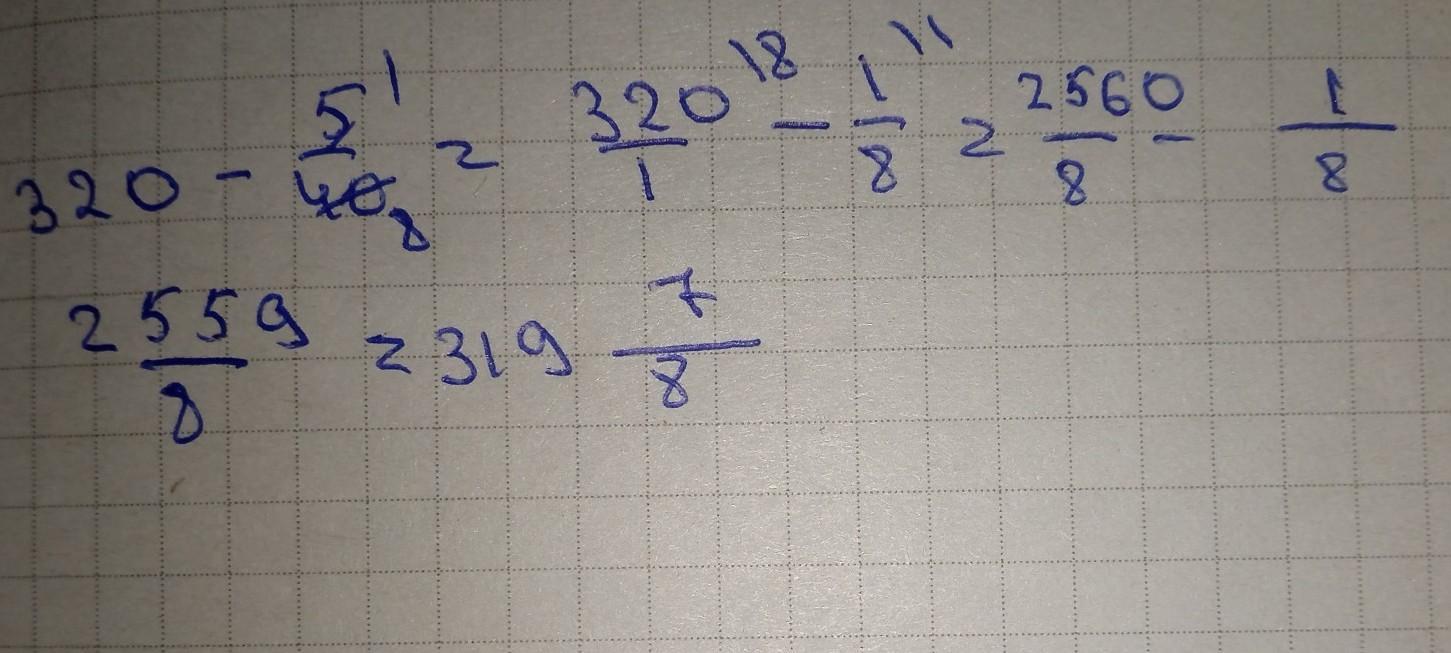 320 - 5/40 1 8 = 320/1 \8 - 1/8 \1 = 2560/8 - 1/8
2559/8 = 319 7/8